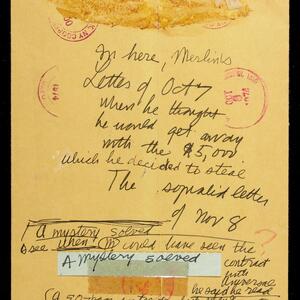 N.Y. CORP
In here, Merlin's
Letter of Oct 7
when he thought
he would get away
with the $5,000
which he decided to steal
The
letter
of Nov 8
A mystery solved
see when could have seen the ?
contract
with
Universal
he said he read
A mystery solved